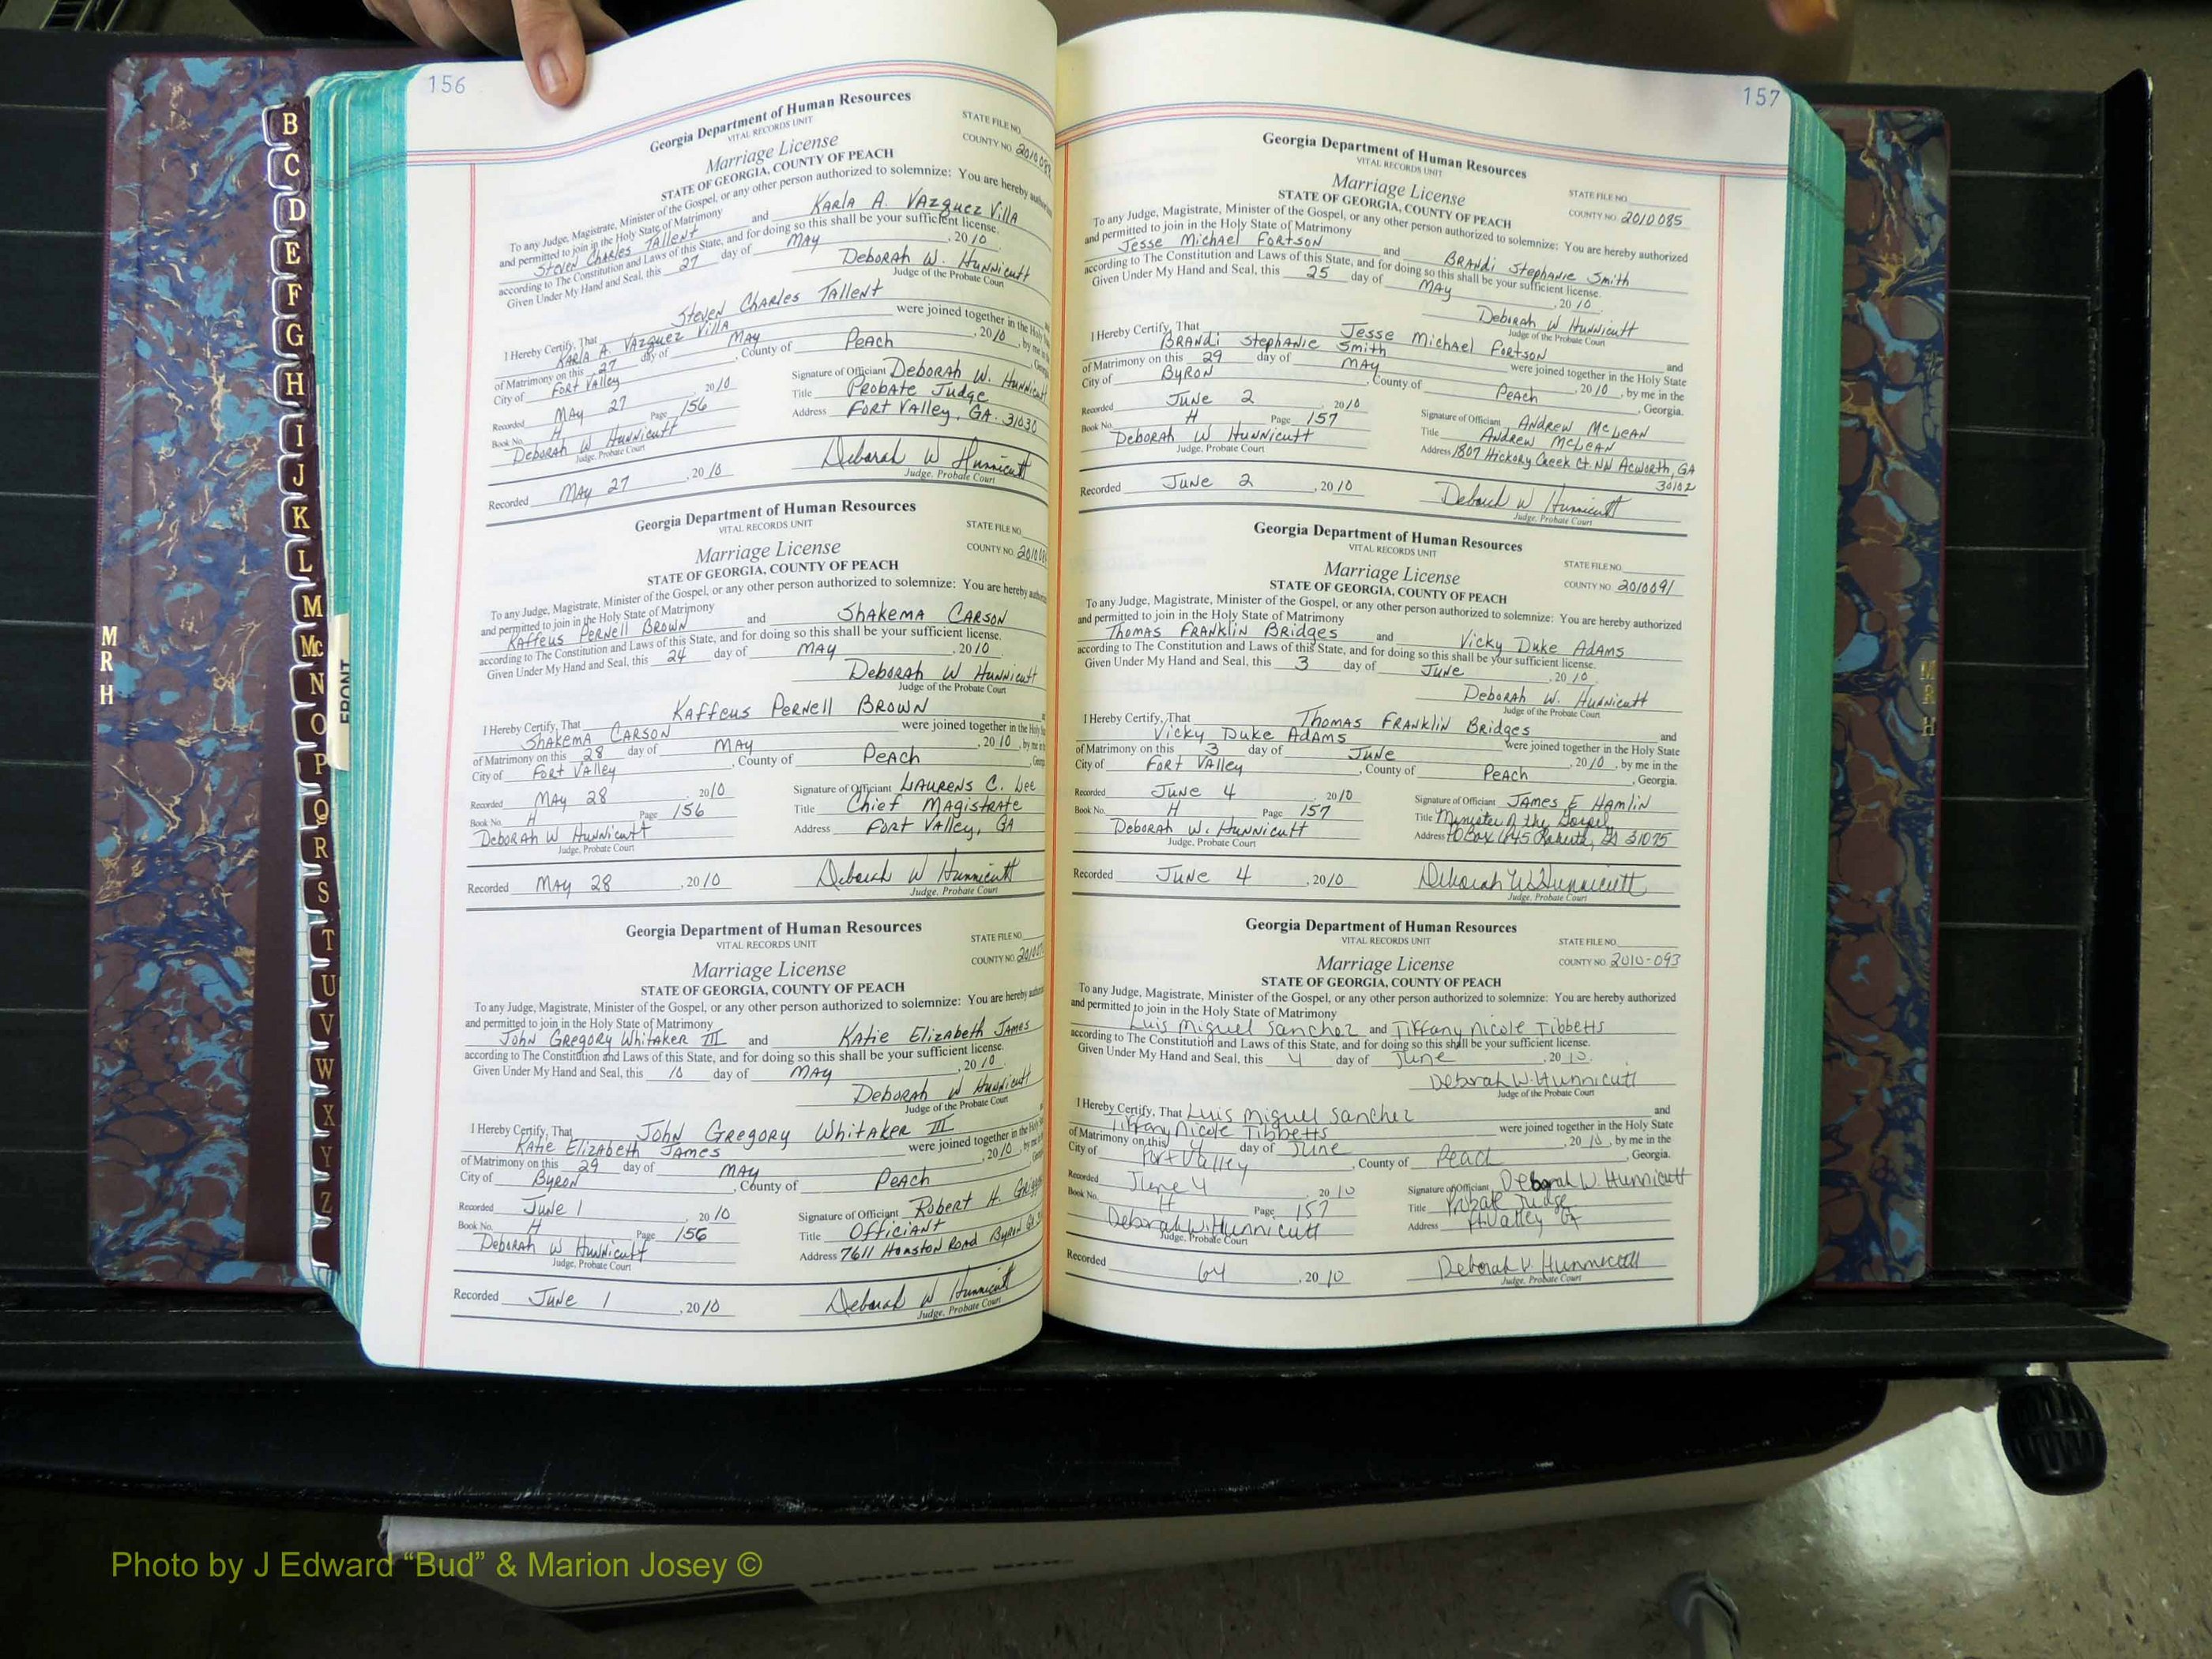 156
Georgia Department of Human Resources
VITAL RECORDS UNIT
STATE FILE NO.
Marriage License
COUNTY NO.
STATE OF GEORGIA, COUNTY OF PEACH
To any Judge, Magistrate, Minister of the Gospel, or any other person authorized to solemnize: You are hereby
and permitted to join in the Holy State of Matrimony
Steven Charles Tallent and Karla A. Vazquez Villa
according to The Constitution and Laws of this State, and for doing so this shall be your sufficient license.
Given Under My Hand and Seal, this 27 day of May, 2010
Deborah W. Hunnicutt
Judge of the Probate Court
I Hereby Certify, That Steven Charles Tallent
Karla A. Vazquez Villa were joined together in the
of Matrimony on this 27 day of May, 2010, by me
City of Fort Valley, County of Peach
Recorded May 27 2010 Signature of Officiant Deborah W. Hunnicutt
Book No. H Page 156 Title Probate Judge
Deborah W Hunnicutt Address Fort Valley, GA. 31030
Judge, Probate Court
Recorded May 27, 2010 Deborah W Hunnicutt
Judge, Probate Court
Georgia Department of Human Resources
VITAL RECORDS UNIT
STATE FILE NO.
Marriage License
COUNTY NO.
STATE OF GEORGIA, COUNTY OF PEACH
To any Judge, Magistrate, Minister of the Gospel, or any other person authorized to solemnize: You are hereby
and permitted to join in the Holy State of Matrimony
Kaffeus Pernell Brown and Shakema Carson
according to The Constitution and Laws of this State, and for doing so this shall be your sufficient license.
Given Under My Hand and Seal, this 24 day of May, 2010
Deborah W Hunnicutt
Judge of the Probate Court
I Hereby Certify, That Kaffeus Pernell Brown
Shakema Carson were joined together in the
of Matrimony on this 28 day of May, 2010, by me
City of Fort Valley, County of Peach
Recorded May 28 2010 Signature of Officiant Laurens C. Lee
Book No. H Page 156 Title Chief Magistrate
Deborah W Hunnicutt Address Fort Valley, GA
Judge, Probate Court
Recorded May 28, 2010 Deborah W Hunnicutt
Judge, Probate Court
Georgia Department of Human Resources
VITAL RECORDS UNIT
STATE FILE NO.
Marriage License
COUNTY NO.
STATE OF GEORGIA, COUNTY OF PEACH
To any Judge, Magistrate, Minister of the Gospel, or any other person authorized to solemnize: You are hereby
and permitted to join in the Holy State of Matrimony
John Gregory Whitaker III and Katie Elizabeth James
according to The Constitution and Laws of this State, and for doing so this shall be your sufficient license.
Given Under My Hand and Seal, this 10 day of May, 2010
Deborah W Hunnicutt
Judge of the Probate Court
I Hereby Certify, That John Gregory Whitaker III
Katie Elizabeth James were joined together in the
of Matrimony on this 29 day of May, 2010, by me
City of Byron, County of Peach
Recorded June 1 2010 Signature of Officiant Robert H.
Book No. H Page 156 Title Officiant
Deborah W Hunnicutt Address 7611 Houston Road Byron GA
Judge, Probate Court
Recorded June 1, 2010 Deborah W Hunnicutt
Judge, Probate Court
157
Georgia Department of Human Resources
VITAL RECORDS UNIT
Marriage License
STATE FILE NO.
STATE OF GEORGIA, COUNTY OF PEACH
COUNTY NO. 2010085
To any Judge, Magistrate, Minister of the Gospel, or any other person authorized to solemnize: You are hereby authorized
and permitted to join in the Holy State of Matrimony
Jesse Michael Fortson and Brandi Stephanie Smith
according to The Constitution and Laws of this State, and for doing so this shall be your sufficient license.
Given Under My Hand and Seal, this 25 day of May, 2010
Deborah W Hunnicutt
Judge of the Probate Court
I Hereby Certify, That Jesse Michael Fortson and
Brandi Stephanie Smith were joined together in the Holy State
of Matrimony on this 29 day of May, 2010, by me in the
City of Byron, County of Peach, Georgia.
Recorded June 2 2010 Signature of Officiant Andrew McLean
Book No. H Page 157 Title Andrew McLean
Deborah W Hunnicutt Address 1807 Hickory Creek Ct. NN Acworth, GA
Judge, Probate Court 30102
Recorded June 2, 2010 Deborah W Hunnicutt
Judge, Probate Court
Georgia Department of Human Resources
VITAL RECORDS UNIT
STATE FILE NO.
Marriage License
COUNTY NO. 2010091
STATE OF GEORGIA, COUNTY OF PEACH
To any Judge, Magistrate, Minister of the Gospel, or any other person authorized to solemnize: You are hereby authorized
and permitted to join in the Holy State of Matrimony
Thomas Franklin Bridges and Vicky Duke Adams
according to The Constitution and Laws of this State, and for doing so this shall be your sufficient license.
Given Under My Hand and Seal, this 3 day of June, 2010
Deborah W. Hunnicutt
Judge of the Probate Court
I Hereby Certify, That Thomas Franklin Bridges and
Vicky Duke Adams were joined together in the Holy State
of Matrimony on this 3 day of June, 2010, by me in the
City of Fort Valley, County of Peach, Georgia.
Recorded June 4 2010 Signature of Officiant James E Hamlin
Book No. H Page 157 Title Minister of the Gospel
Deborah W. Hunnicutt Address PO Box
Judge, Probate Court
Recorded June 4, 2010 Deborah W Hunnicutt
Judge, Probate Court
Georgia Department of Human Resources
VITAL RECORDS UNIT
STATE FILE NO.
Marriage License
COUNTY NO. 2010-093
STATE OF GEORGIA, COUNTY OF PEACH
To any Judge, Magistrate, Minister of the Gospel, or any other person authorized to solemnize: You are hereby authorized
and permitted to join in the Holy State of Matrimony
Luis Miguel Sanchez and Tiffany Nicole Tibbetts
according to The Constitution and Laws of this State, and for doing so this shall be your sufficient license.
Given Under My Hand and Seal, this 4 day of June, 2010.
Deborah W. Hunnicutt
Judge of the Probate Court
I Hereby Certify, That Luis Miguel Sanchez and
Tiffany Nicole Tibbetts were joined together in the Holy State
of Matrimony on this 4 day of June, 2010, by me in the
City of Fort Valley, County of Peach, Georgia.
Recorded June 4 2010 Signature of Officiant Deborah W. Hunnicutt
Book No. H Page 157 Title Probate Judge
Deborah W. Hunnicutt Address Ft Valley GA
Judge, Probate Court
Recorded 64, 2010 Deborah W. Hunnicutt
Judge, Probate Court
B
C
D
E
F
G
H
I
J
K
L
M
Mc
N
O
P
Q
R
S
T
U
V
W
X
Y
Z
FRONT
M
R
H
M
R
H
Photo by J Edward “Bud” & Marion Josey ©